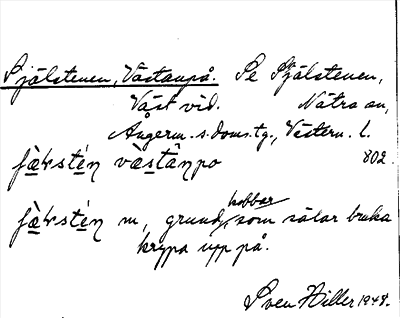 Själstenen, Västanpå. Se Själstenen,
Väst vid. Nätra sn,
Ångerm. s. doms.tg., Västern. l.
802.
västânpo
m, grund, kobbar som sälar bruka
krypa upp på.
Sven Hiller 1948.